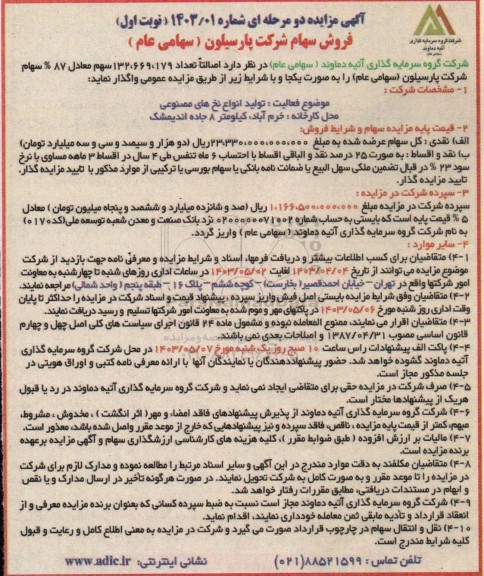 آگهی مزایده دو مرحله ای شماره ۱۴۰۳/۰۱ (نوبت اول)
فروش سهام شرکت پارسیلون ( سهامی عام )
شرکت گروه سرمایه گذاری
آتیه دماوند
شرکت گروه سرمایه گذاری آتیه دماوند ( سهامی عام) در نظر دارد اصالتاً تعداد ۱۳۲،۶۶۹،۱۷۹ سهم معادل ۸۷ % سهام
شرکت پارسیلون (سهامی عام) را به صورت یکجا و با شرایط زیر از طریق مزایده عمومی واگذار نماید:
۱- مشخصات شرکت :
موضوع فعالیت : تولید انواع نخ های مصنوعی
محل کارخانه : خرم آباد، کیلومتر ۸ جاده اندیمشک
۲- قیمت پایه مزایده سهام و شرایط فروش:
الف) نقدی : کل سهام عرضه شده به مبلغ ۲۳،۳۳۰،۰۰۰،۰۰۰،۰۰۰ریال (دو هزار و سیصد و سی و سه میلیارد تومان)
ب) نقد و اقساط : به صورت ۲۵ درصد نقد و الباقی اقساط با احتساب ۶ ماه تنفس طی ۴ سال در اقساط ۳ ماهه مساوی با نرخ
سود ۲۳ % در قبال تضمین ملکی سهل البیع یا ضمانت نامه بانکی یا سهام بورسی یا ترکیبی از موارد مذکور با تایید مزایده گذار.
تایید مزایده گذار.
۳- سپرده شرکت در مزایده :
سپرده شرکت در مزایده مبلغ ۱،۱۶۶،۵۰۰،۰۰۰،۰۰۰ ریال (صد و شانزده میلیارد و ششصد و پنجاه میلیون تومان ) معادل
۵ % قیمت پایه است که بایستی به حساب شماره ۰۲۰۰۰۰۰۰۷۱۰۰۲ نزد بانک صنعت و معدن شعبه توسعه ملی(کد۰۱۷۰)
به نام شرکت گروه سرمایه گذاری آتیه دماوند ( سهامی عام ) واریز گردد.
۴- سایر موارد :
۴-۱) متقاضیان برای کسب اطلاعات بیشتر و دریافت فرمها، اسناد و شرایط مزایده و معرفی نامه جهت بازدید از شرکت
موضوع مزایده می توانند از تاریخ ۱۴۰۳/۰۴/۰۴ لغایت ۱۴۰۳/۰۵/۰۲ در ساعات اداری روزهای شنبه تا چهارشنبه به معاونت
امور شرکتها واقع در تهران – خیابان احمدقصیر( بخارست) – کوچه ششم – پلاک ۱۶ – طبقه پنجم ( واحد شمالی) مراجعه نمایند.
۴-۲) متقاضیان وفق شرایط مزایده بایستی اصل فیش واریز سپرده ، پیشنهاد قیمت و اسناد شرکت در مزایده را حداکثر تا پایان
وقت اداری روز شنبه مورخ ۱۴۰۳/۰۵/۰۶ در پاکتهای مهر و موم شده به معاونت امور شرکتها تسلیم و رسید دریافت نمایند.
۴-۳) متقاضیان اقرار می نمایند، ممنوع المعامله نبوده و مشمول ماده ۲۴ قانون اجرای سیاست های کلی اصل چهل و چهارم
قانون اساسی مصوب ۱۳۸۷/۰۴/۳۱ و اصلاحات بعدی نمی باشند.
۴-۴) پاکت الف پیشنهادات راس ساعت ۱۰ صبح روز یک شنبه مورخ ۱۴۰۳/۰۵/۰۷ در محل شرکت گروه سرمایه گذاری
آتیه دماوند گشوده خواهد شد. حضور پیشنهاددهندگان یا نمایندگان آنها با ارائه معرفی نامه کتبی و اوراق هویتی در
جلسه مذکور مجاز است.
۴-۵) صرف شرکت در مزایده حقی برای متقاضی ایجاد نمی نماید و شرکت گروه سرمایه گذاری آتیه دماوند در رد یا قبول
هریک از پیشنهادها مختار است.
۴-۶) شرکت گروه سرمایه گذاری آتیه دماوند از پذیرش پیشنهادهای فاقد امضاء و مهر( اثر انگشت ) ، مخدوش ، مشروط،
مبهم، کمتر از قیمت پایه مزایده ، ناقص، فاقد سپرده و نیز پیشنهادهایی که خارج از موعد مقرر واصل شده باشد، معذور است.
۴-۷) مالیات بر ارزش افزوده ( طبق ضوابط مقرر )، کلیه هزینه های کارشناسی ارزشگذاری سهام و آگهی مزایده برعهده
برنده مزایده است.
۴-۸) متقاضیان مکلفند به دقت موارد مندرج در این آگهی و سایر اسناد مرتبط را مطالعه نموده و مدارک لازم برای شرکت
در مزایده را تا موعد مقرر و به صورت کامل به شرکت تحویل نمایند. در صورت هرگونه تأخیر در ارسال مدارک و یا نقص
و ابهام در مستندات دریافتی، مطابق مقررات رفتار خواهد شد.
۴-۹) شرکت گروه سرمایه گذاری آتیه دماوند مجاز است نسبت به ضبط سپرده کسانی که بعنوان برنده مزایده معرفی و از
انعقاد قرارداد و تأدیه مابقی ثمن معامله خودداری نمایند، اقدام نماید.
۴-۱۰) نقل و انتقال سهام در چارچوب قرارداد صورت می گیرد و شرکت در مزایده به معنی اطلاع کامل و رعایت و قبول
کلیه شرایط مندرج است.
تلفن تماس : ۸۸۵۲۱۵۹۹ (۰۲۱) نشانی اینترنتی: www.adic.ir